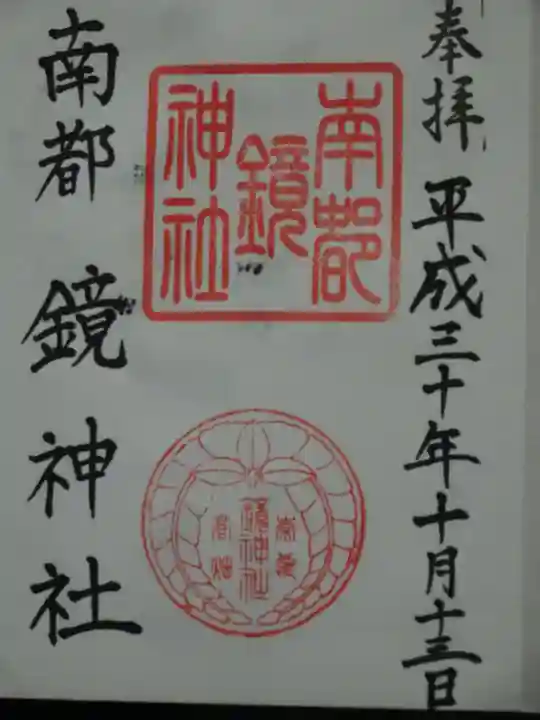 奉拝 平成三十年十月十三日
南都
鏡
神社
鏡神社
南都 鏡神社